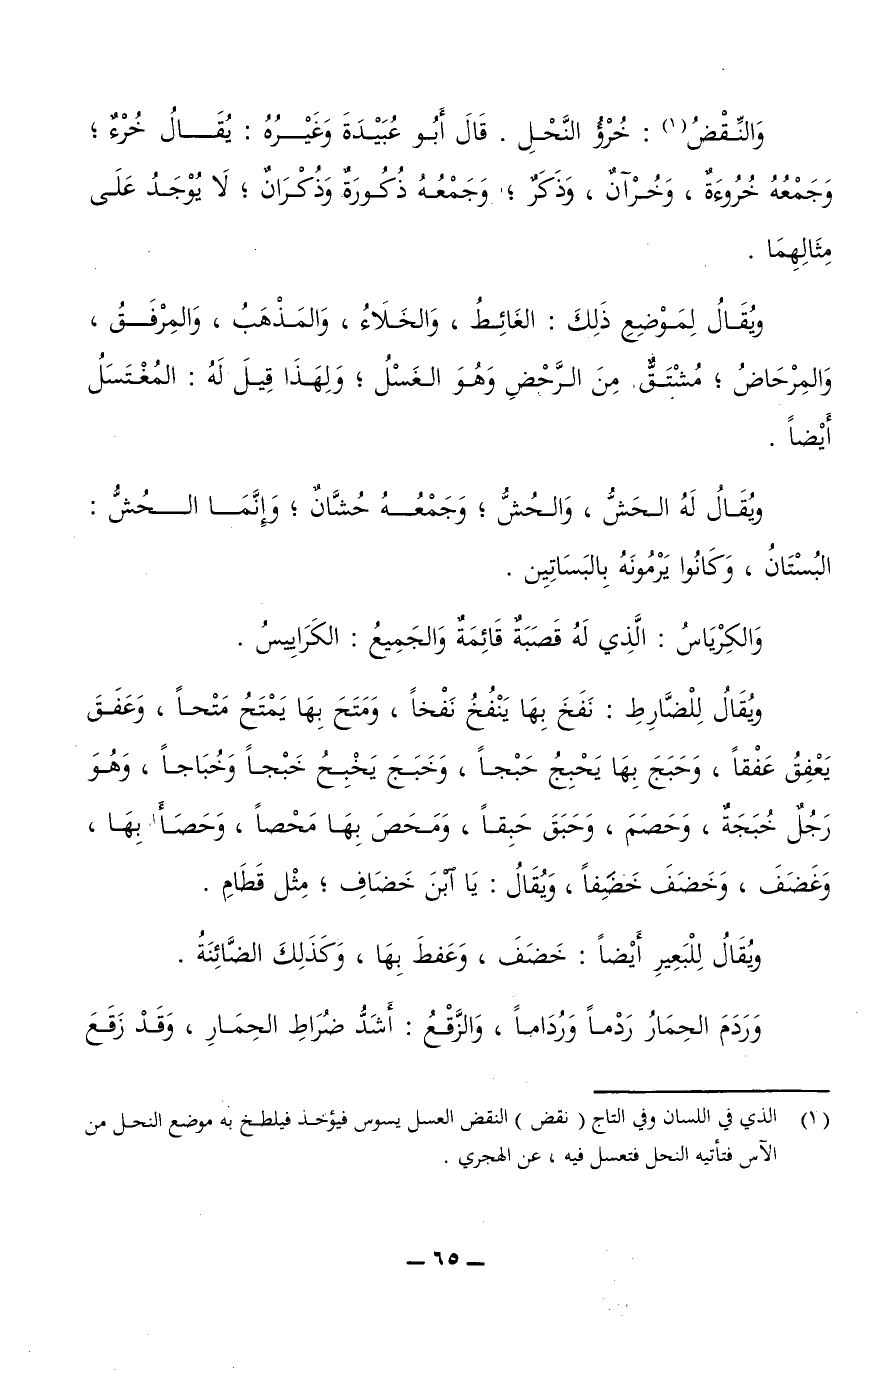 وَالنِّقْضُ(١) : خُرْؤُ النَّحْلِ . قَالَ أَبُو عُبَيْدَةَ وَغَيْرُهُ : يُقَالُ خُرْءٌ ؛
وَجَمْعُهُ خُرُوءَةٌ ، وَخُرْآنٌ ، وَذَكَرٌ ؛ وَجَمْعُهُ ذُكُورَةٌ وَذُكْرَانٌ ؛ لَا يُوْجَدُ عَلَى
مِثَالِهِمَا .
ويُقَالُ لِمَوْضِعِ ذَلِكَ : الغَائِطُ ، وَالخَلَاءُ ، وَالمَذْهَبُ ، وَالمِرْفَقُ ،
وَالمِرْحَاضُ ؛ مُشْتَقٌّ مِنَ الرَّحْضِ وَهُوَ الغَسْلُ ؛ وَلِهَذَا قِيلَ لَهُ : المُغْتَسَلُ
أَيْضاً .
ويُقَالُ لَهُ الحَشُّ ، وَالحُشُّ ؛ وَجَمْعُهُ حُشَّانٌ ؛ وَإِنَّمَا الحُشُّ :
البُسْتَانُ ، وَكَانُوا يَرْمُونَهُ بِالبَسَاتِينِ .
وَالكِرْيَاسُ : الَّذِي لَهُ قَصَبَةٌ قَائِمَةٌ وَالجَمِيعُ : الكَرَايِيسُ .
ويُقَالُ لِلْضَّارِطِ : نَفَخَ بِهَا يَنْفُخُ نَفْخاً ، وَمَتَحَ بِهَا يَمْتَحُ مَتْحاً ، وَعَفَقَ
يَعْفِقُ عَفْقاً ، وَحَبَجَ بِهَا يَحْبِجُ حَبْجاً ، وَخَبَجَ يَخْبِجُ خَبْجاً وَخُبَاجاً ، وَهُوَ
رَجُلٌ خُبَجَةٌ ، وَحَصَمَ ، وَحَبَقَ حَبِقاً ، وَمَحَصَ بِهَا مَحْصاً ، وَحَصَأَ بِهَا ،
وَغَضَفَ ، وَخَضَفَ خَضِفاً ، وَيُقَالُ : يَا آبْنَ خَضَافِ ؛ مِثْل قَطَامِ .
ويُقَالُ لِلْبَعِيرِ أَيْضاً : خَضَفَ ، وَعَفطَ بِهَا ، وَكَذَلِكَ الضَّائِنَةُ .
وَرَدَمَ الحِمَارُ رَدْماً وَرُدَاماً ، وَالزَّقْعُ : أَشَدُّ ضُرَاطِ الحِمَارِ ، وَقَدْ زَقَعَ
(١) الذي في اللسان وفي التاج ( نقض ) النقض العسل يسوس فيؤخذ فيلطخ به موضع النحل من
الآس فتأتيه النحل فتعسل فيه ، عن الهجري .
ـ ٦٥ ـ